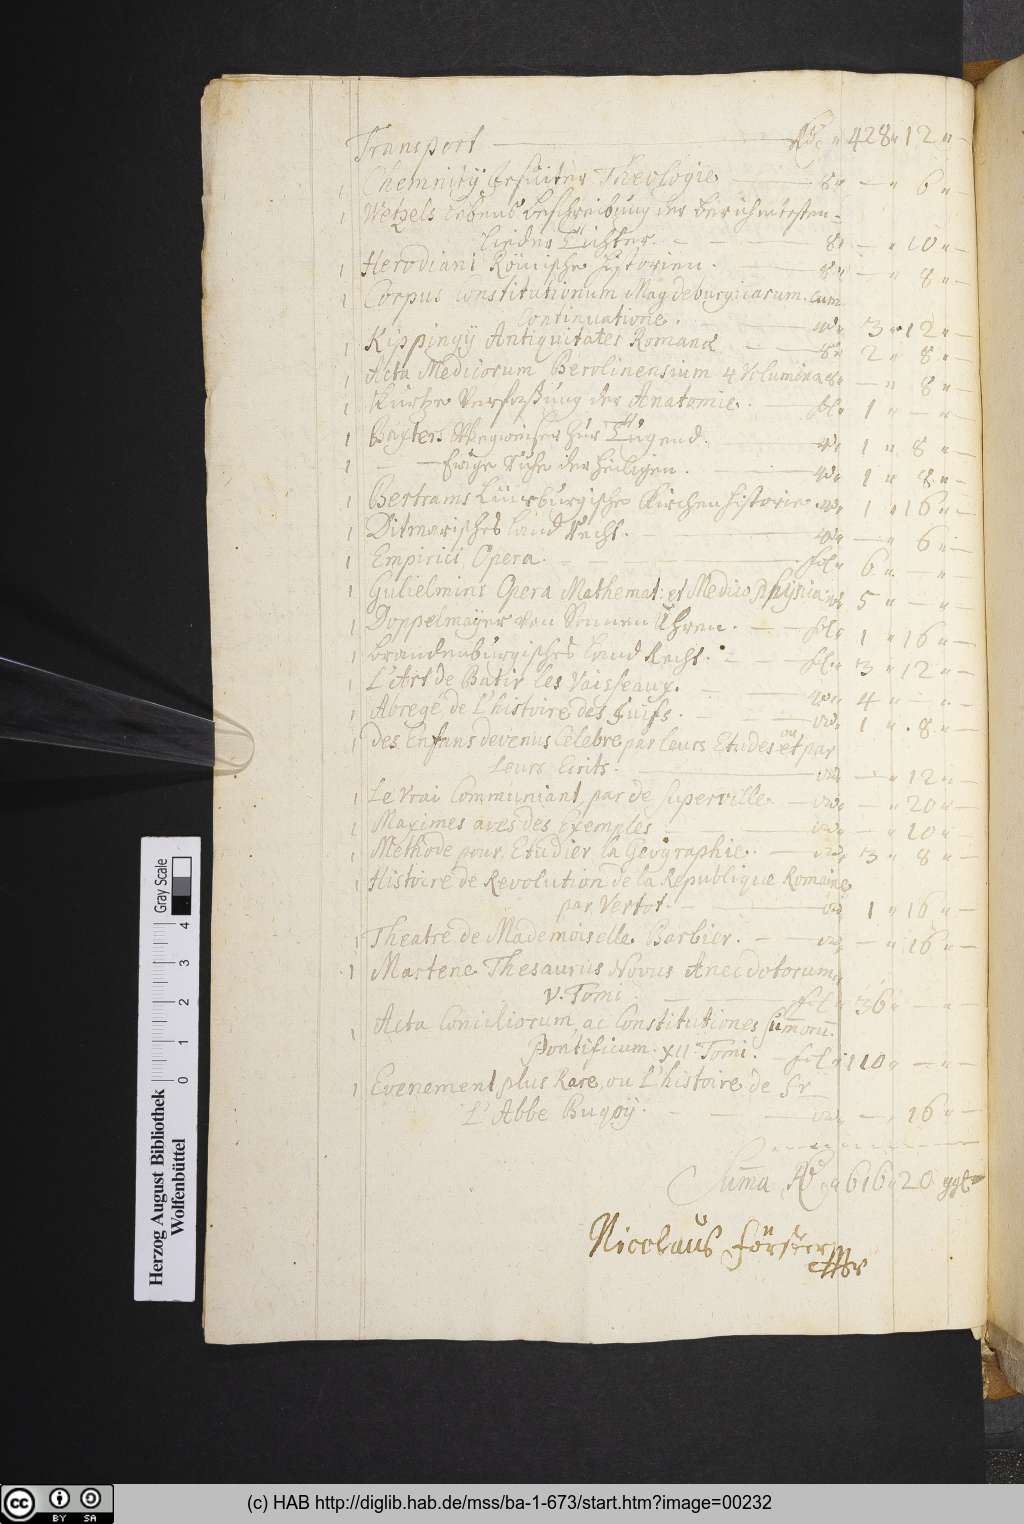 Transport — Rthlr " 428 " 12 " —
1 Chemnitÿ Jesuiter Theologie — 8° " — " 6 " —
1 Wetzels Lebens Beschreibung der Berühmtesten
Lieder Dichter. — 8° — " 10 " —
1 Herodiani Römische Historien. — 8° " — " 8 " —
1 Corpus Constitutionum Magdeburgicarum. cum
Continuatione. — 4° " 3 " 12 " —
1 Kippingÿ Antiquitates Romanæ — 8° 2 " 8 " —
1 Acta Medicorum Berolinensium 4 Volumina 8° — " 8 " —
1 Kurtze Verfaßung der Anatomie. — fol. 1 " — " —
1 Baxters Wegweiser zur Tugend. — 1 " 8 " —
1 — Ewige Ruhe der Heiligen. — 1 " 8 " —
1 Bertrams Lüneburgische Kirchenhistorie 4° 1 " 16 " —
1 Ditmarisches Land Recht. — 4° — " 6 " —
1 Empirici Opera. — fol. 6 " — " —
1 Gulielmini Opera Mathemat: et Medico Physica 4° 5 " — " —
1 Doppelmayer von Sonnen Uhren. — fol. 1 " 16 " —
1 Brandenburgisches Land Recht. — fol. 3 " 12 " —
1 L'Art de Batir les Vaisseaux. — 4° 4 " — " —
1 Abregé de L'histoire des Juifs. — 12° 1 " 8 " —
1 Des Enfans devenus Celebre par leurs Etudes ou et par
leurs Ecrits. — 12° — " 12 " —
1 Le Vrai Communiant par de Superville. — 12° — " 20 " —
1 Maximes aves des Exemples — 12° — " 10 " —
1 Methode pour Etudier la Geographie. — 12° 3 " 8 " —
1 Histoire de Revolution de la Republique Romaine
par Vertot. — 12° 1 " 16 " —
1 Theatre de Mademoiselle Barbier. — 12° — " 16 " —
1 Martene Thesaurus Novus Anecdotorum
V. Tomi — fol " 36 " — " —
1 Acta Conciliorum ac Constitutiones Sumoru.
Pontificum. XII Tomi. — fol " 110 " — " —
1 Evenement plus Rare, ou L'histoire de Sr
L'Abbe Buqoÿ. — 12° — " 16 " —
Suma Rthlr " 616 " 20 ggl
Nicolaus Förster
Herzog August Bibliothek
Wolfenbüttel
Gray Scale
0 1 2 3 4
(c) HAB http://diglib.hab.de/mss/ba-1-673/start.htm?image=00232
cc BY SA